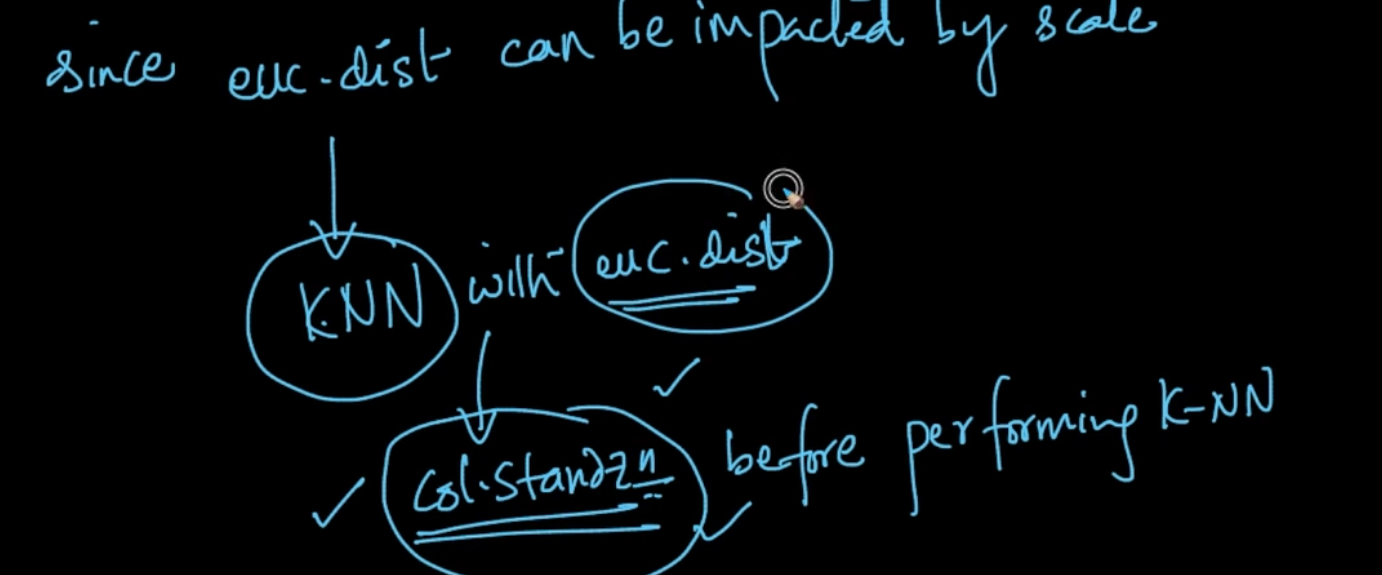 since euc.dist can be impacted by scale
KNN with euc.dist
col.standzn before performing K-NN